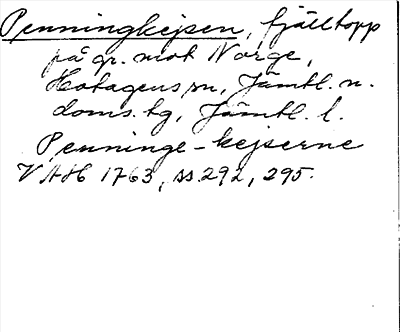 Penningkejsen, fjälltopp
på gr. mot Norge,
Hotagens sn, Jämtl. n.
doms. tg, Jämtl. l.
Penninge-kejserne
VAH 1763, ss. 292, 295.